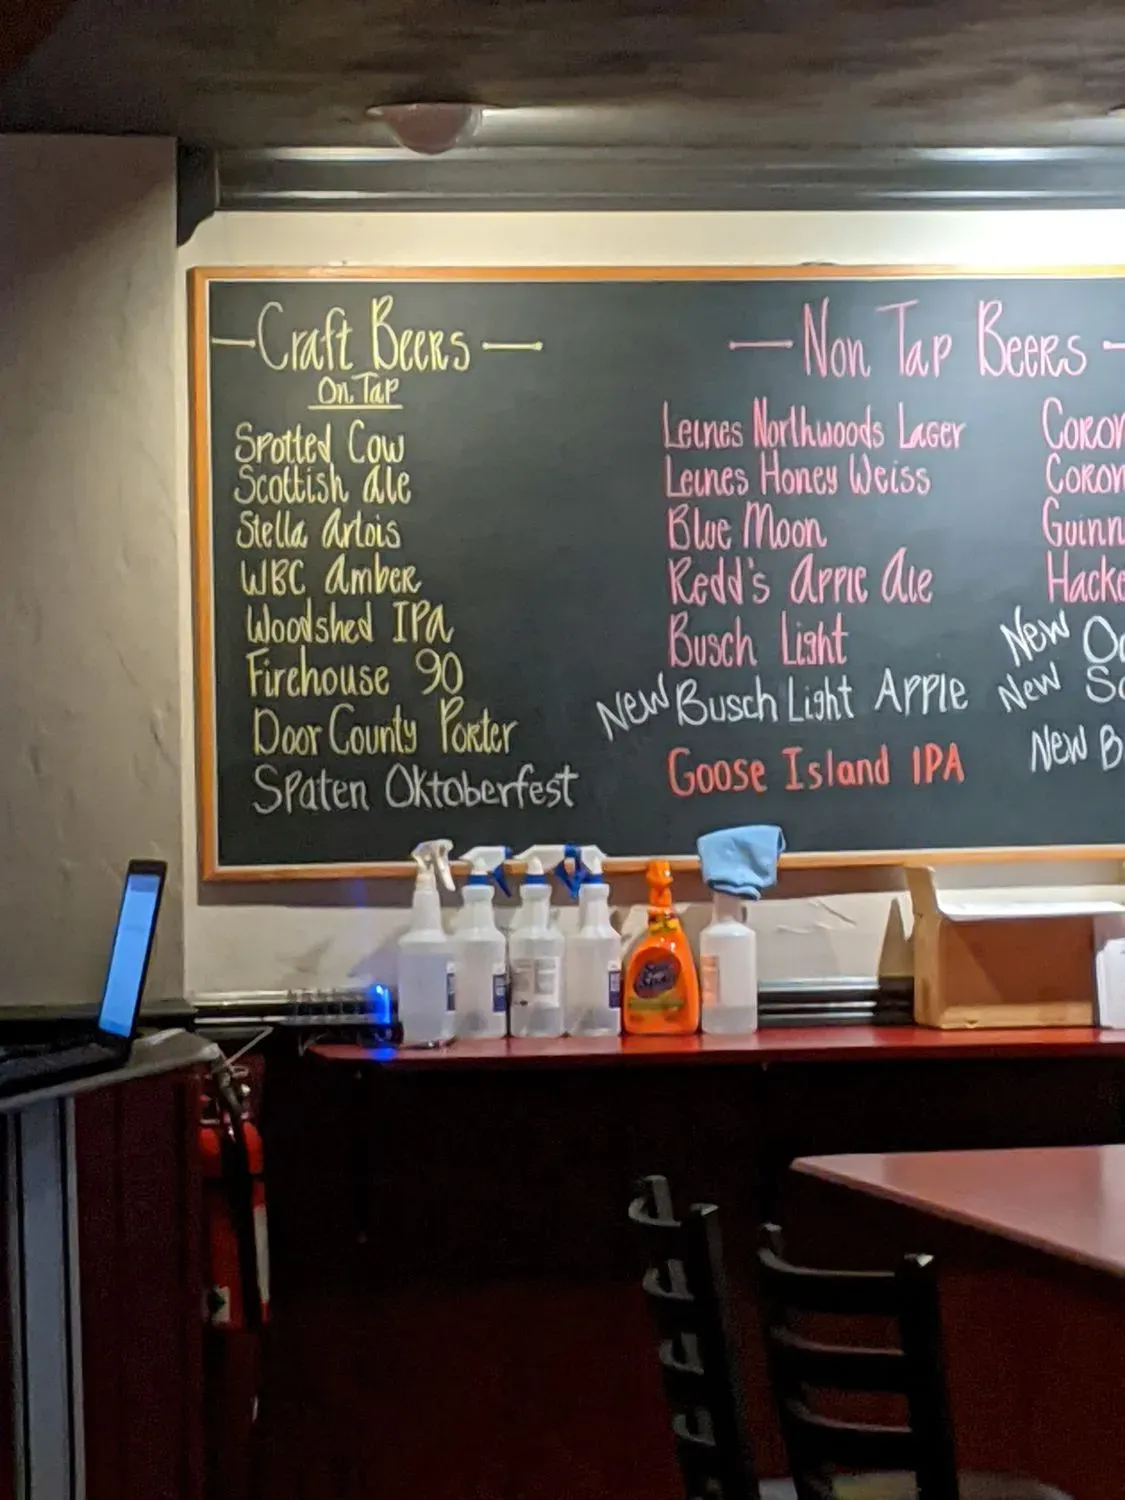 Craft Beers
On Tap
Spotted Cow
Scottish Ale
Stella Artois
WBC Amber
Woodshed IPA
Firehouse 90
Door County Porter
Spaten Oktoberfest
Non Tap Beers
Leines Northwoods Lager
Leines Honey Weiss
Blue Moon
Redd's Apple Ale
Busch Light
New Busch Light Apple
Goose Island IPA
Coron
Coron
Guinn
Hacke
New Oc
New
New B